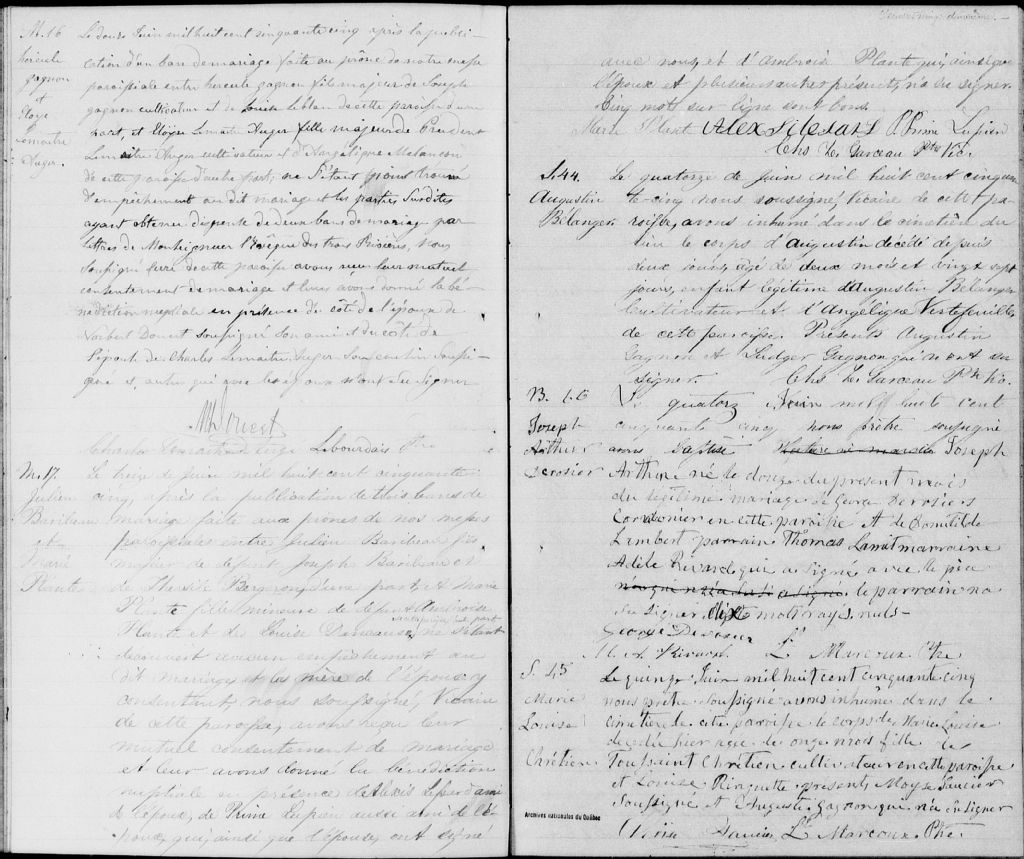 M. 16
hercule
gagnon
et
Eloyse
Lemaitre
Auger.
Le douze Juin mil huit cent cinquante cinq après la publi-
cation d'un ban de mariage faite au prône de notre messe
paroissiale entre hercule gagnon fils majeur de Joseph
gagnon cultivateur et de Louise leblanc de cette paroisse d'une
part, et Eloyse Lemaitre Auger fille majeure de Prudent
Lemaitre Auger cultivateur et d'Angélique Melancon
de cette paroisse d'autre part; ne s'étant point trouvé
d'empêchement au dit mariage et les parties susdites
ayant obtenu dispense de deux bans de mariage par
lettres de Monseigneur l'Evêque des trois Rivières, nous
soussigné curé de cette paroisse avons reçu leur mutuel
consentement de mariage et leur avons donné la bé-
nédiction nuptiale en présence du coté de l'épouse de
Norbert soussigné son ami et du côté de
l'époux de Charles Lemaitre Auger son cousin soussi-
gné et, autres qui avec les époux n'ont su signer
Charles Lemaitre Auger Libourdais
M. 17.
Julien
Baribeau
et
Marie
Plante
Le treize de Juin mil huit cent cinquante
cinq, après la publication de trois bans de
mariage faite aux prones de nos messes
paroissiales entre Julien Baribeau fils
majeur de défunt Joseph Baribeau et
de Thérèse Bergeron d'une part, et Marie
Plante fille mineure de défunt Ambroise
Plante et de Louise ne s'étant
découvert aucun empêchement au
dit mariage et la mère de l'épouse y
consentant, nous soussigné, Vicaire
de cette paroisse, avons reçu leur
mutuel consentement de mariage
et leur avons donné la bénédiction
nuptiale en présence de Alexis ami
de l'époux, de Prime Lupien aussi ami de l'é-
poux, qui, ainsi que l'épouse, ont signé
avec nous, et d'Ambroise Plant qui, ainsi que
l'époux et plusieurs autres présents, n'a su signer.
Cinq mots sur ligne sont bons.
Marie Plant Alex P. Prime Lupien
Chs Ls Garceau Ptre Vic.
S. 44.
Augustin
Bélanger
Le quatorze de Juin mil huit cent cinquan-
te cinq nous soussigné, Vicaire de cette pa-
roisse, avons inhumé dans le cimetière du
lieu le corps d'Augustin décédé depuis
deux jours, agé de deux mois et vingt sept
jours, enfant légitime d'Augustin Bélanger
Cultivateur et d'Angélique Vertefeuille
de cette paroisse. Présents Augustin
Gagnon et Ludger Gagnon qui n'ont su
signer. Chs Ls Garceau Ptre Vic.
B. 46
Joseph
Arthur
Derosier
Le quatorz Juin mil huite cent
cinquante cinq nous prêtre soussigné
avons baptisé Joseph
Arthur né le douze du present mois
du légitime mariage de George Derosiers
Cordonier en cette paroisse et de Domitilde
Lambert parrain Thomas Lamit marraine
Adèle Rivard qui a signé avec le père
le parrain na
su signer dix mots rayés nuls
George Derosier
M. A. Rivard. L. Marcoux. Ptre
S. 45
Marie
Louise
Chrétien
Le quinze Juin mil huit cent cinquante cinq
nous prêtre soussigné avons inhumé dans le
cimetière de cette paroisse le corps de Marie Louise
decedée hier agée de onze mois fille de
Toussaint Chrétien cultivateur en cette paroisse
et Louise Ringuette présents Moyse Saucier
soussigné et Auguste Gagnon qui n'a su signer
Moise Saucier L. Marcoux. Ptre
Archives nationales du Québec